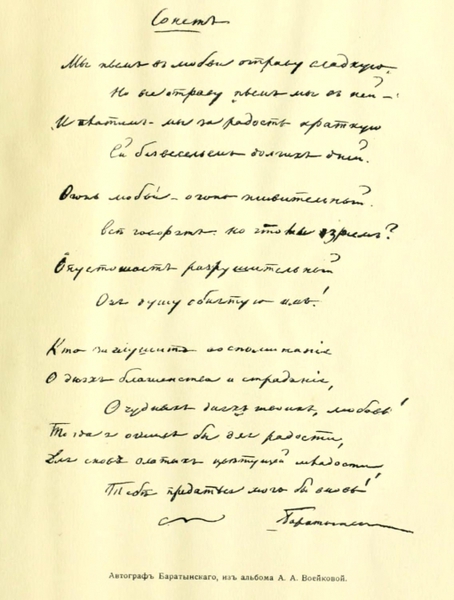 Сонетъ
Мы пьемъ въ любви отраву сладкую,
Но все отраву пьемъ мы въ ней –
И платимъ мы за радость краткую
Ей безвесельемъ долгихъ дней.
Огонь любви – огонь живительный.
Всѣ говорятъ. но что мы зримъ?
Опустошаетъ разрушительный
Онъ душу объятую имъ!
Кто заглушитъ воспоминанія
О дняхъ блаженства и страданія,
О чудныхъ дняхъ твоихъ, любовь!
Тогда я ожилъ бы для радости,
Для сновъ златыхъ цвѣтущей младости
Тебѣ предаться могъ бы вновь!
Баратынскій
Автографъ Баратынскаго, изъ альбома А. А. Воейковой.